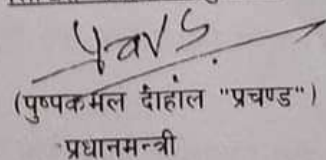 (पुष्पकमल दाहाल "प्रचण्ड")
प्रधानमन्त्री